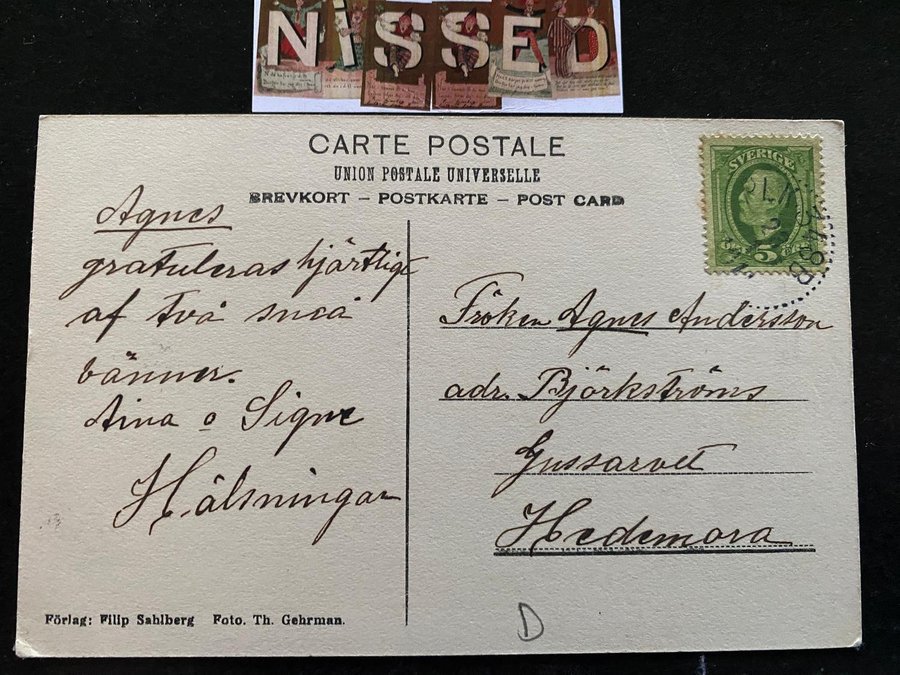 NISSED
CARTE POSTALE
UNION POSTALE UNIVERSELLE
BREVKORT – POSTKARTE – POST CARD
SVERIGE
5
Agnes
gratuleras hjärtligt
af två små
vänner.
Aina o Signe
Hälsningar
Fröken Agnes Andersson
adr. Björkströms
Gussarvet
Hedemora
Förlag: Filip Sahlberg Foto. Th. Gehrman.
D